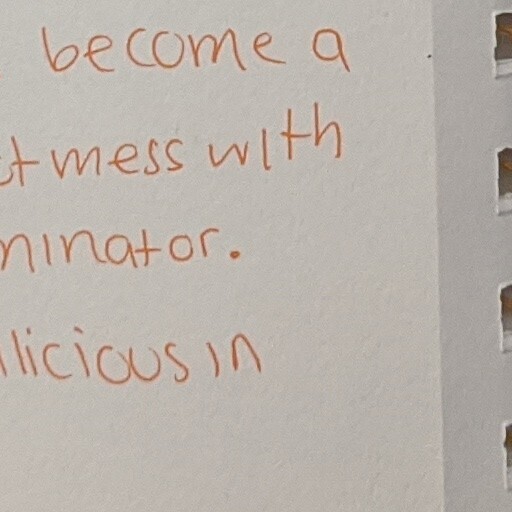 become a
t mess with
ninator.
licious in